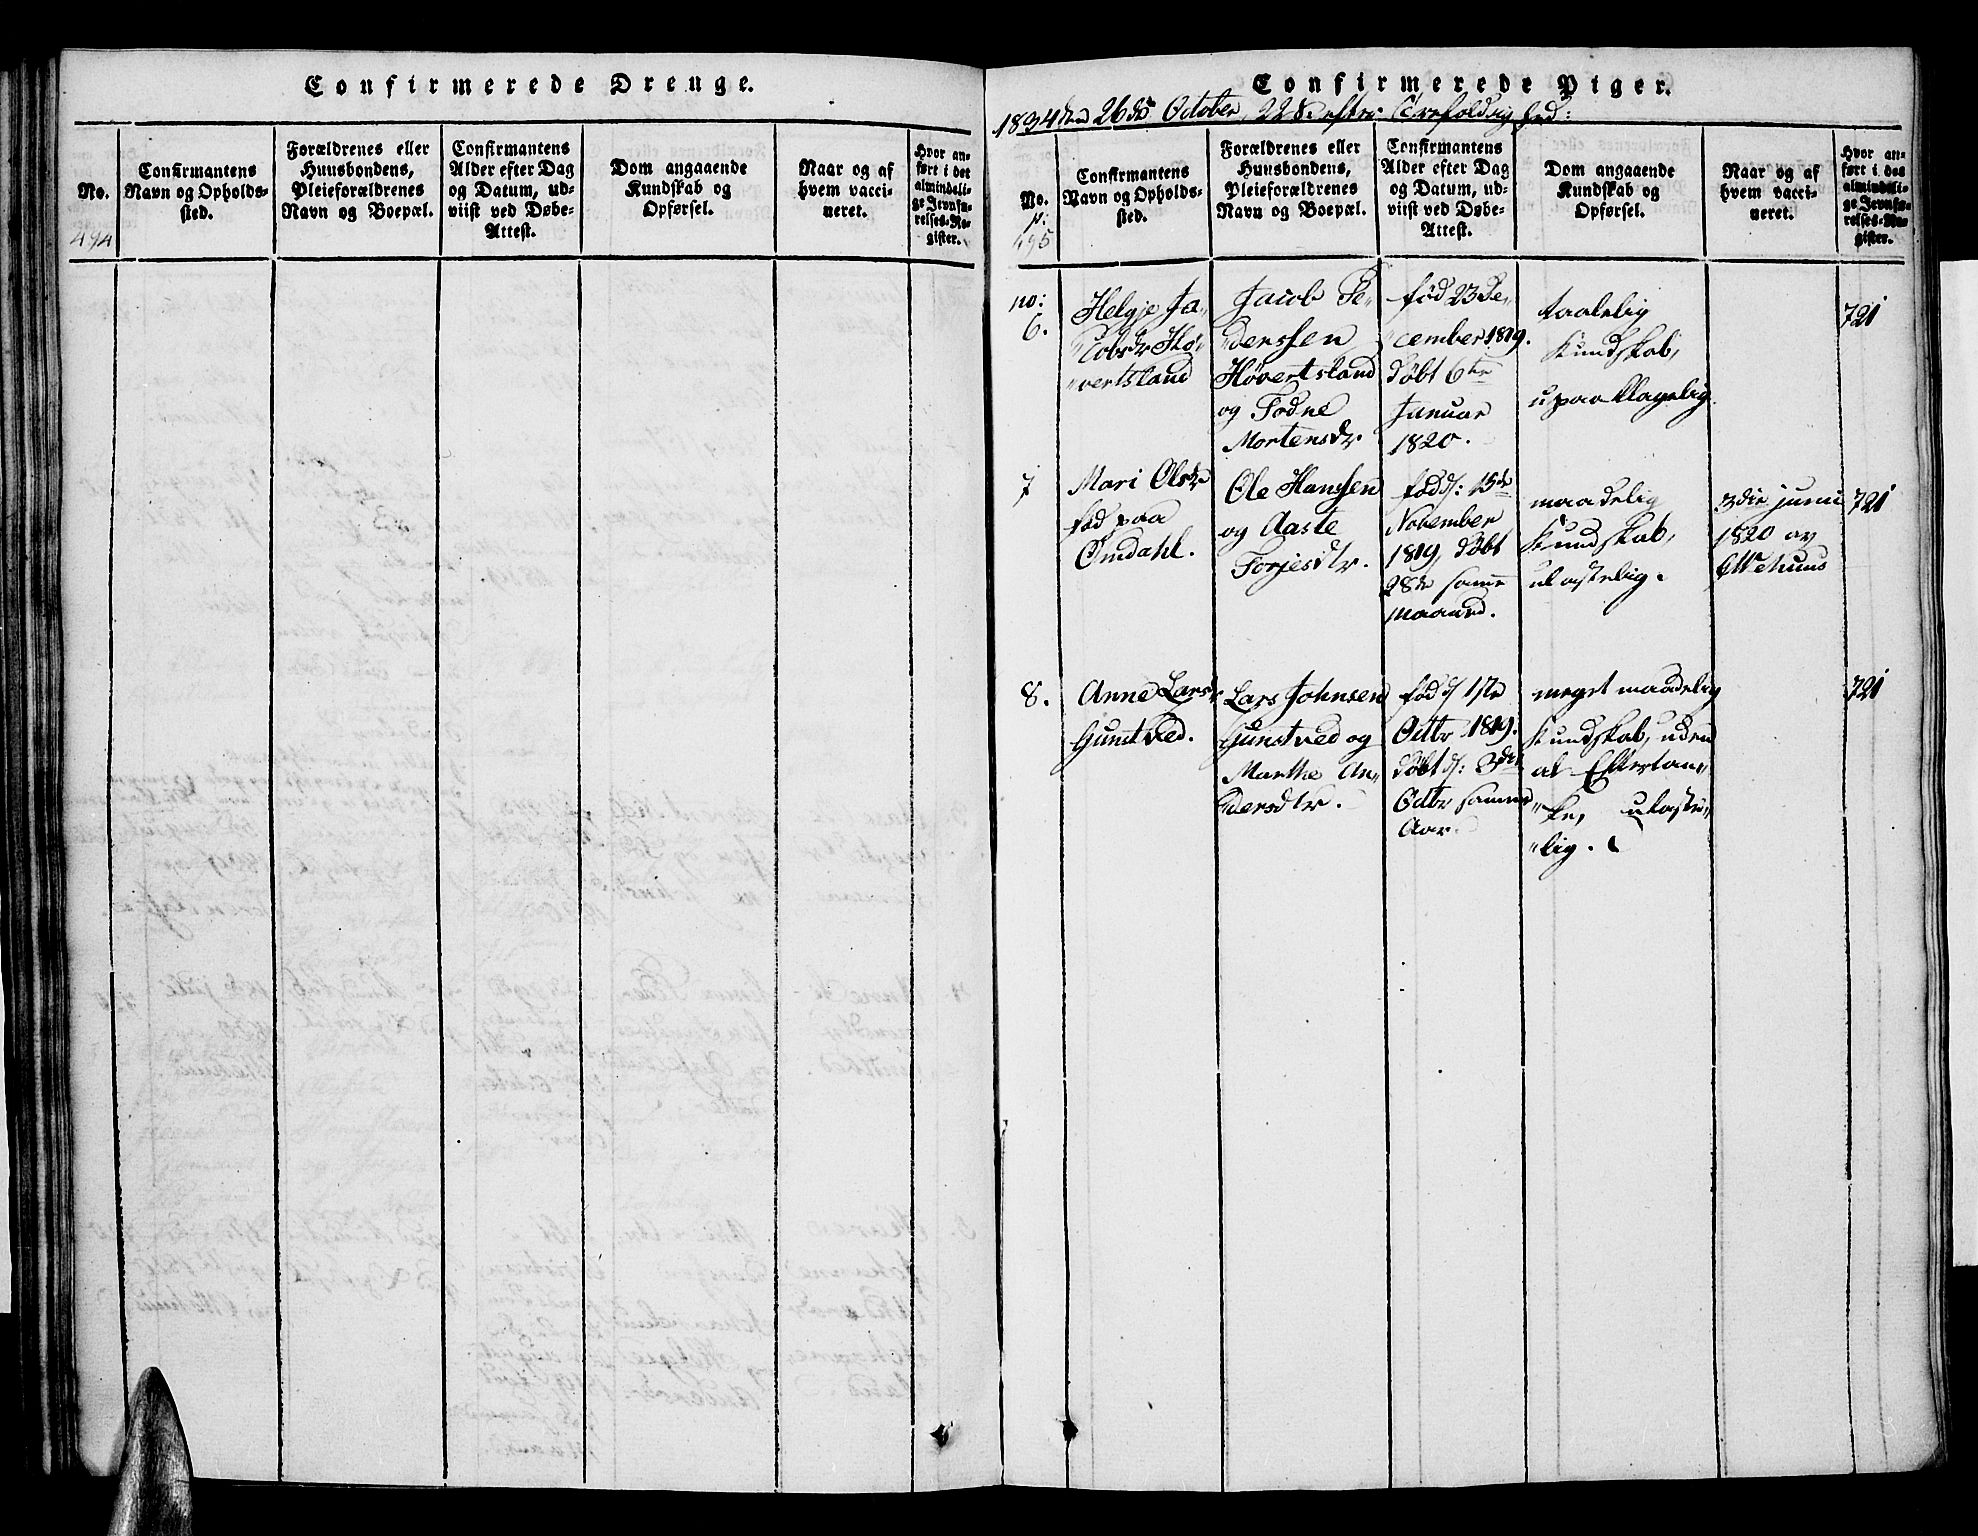 Confirmerede Drenge.
No.
494
Confirmantens
Navn og Opholds-
sted.
Forældrenes eller
Huusbondens,
Pleieforældrenes
Navn og Boepæl.
Confirmantens
Alder efter Dag
og Datum, ud-
viist ved Døbe-
Attest.
Dom angaaende
Kundskab og
Opførsel.
Naar og af
hvem vacci-
neret.
Hvor an-
ført i det
almindeli-
ge Jevnfø-
relses-Re-
gister.
Confirmerede Piger.
1834 den 26de October, 22 S. efter Trefoldighed:
No.
p:
495
Confirmantens
Navn og Opholds-
sted.
Forældrenes eller
Huusbondens,
Pleieforældrenes
Navn og Boepæl.
Confirmantens
Alder efter Dag
og Datum, ud-
viist ved Døbe-
Attest.
Dom angaaende
Kundskab og
Opførsel.
Naar og af
hvem vacci-
neret.
Hvor an-
ført i det
almindeli-
ge Jevnfø-
relses-Re-
gister.
no:
6.
Helgje Ja-
"cobsdr Hø-
"vertsland
Jacob Pe-
"derssen
Høvertsland
og Todne
Mortensdr
fød 23 De-
"cember 1819.
døbt 6te
Januar
1820.
taalelig
Kundskab,
upaaklagelig.
721
7
Mari Olsdr
fød paa
Omdahl.
Ole Hanssen
og Aaste
Torjesdtr.
fød d: 15de
November
1819, døbt
28de samme
maaned.
maadelig
Kundskab,
ulastelig.
3die juni
1820 av
Ottehuus
721
8.
Anne Larsdr
Gunstved.
Lars Johnsen
Gunstved og
Marthe An-
"dersdtr.
fød d 1ste
Octbr 1819.
døbt d: 3die
Octbr samme
Aar.
meget maadelig
Kundskab, uden
al Eftertan-
"ke, ulaste-
"lig.
721